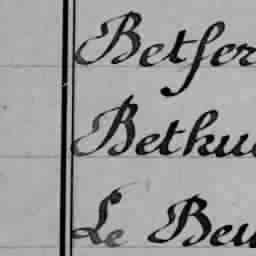 Betfer
Bethu
Le Beu